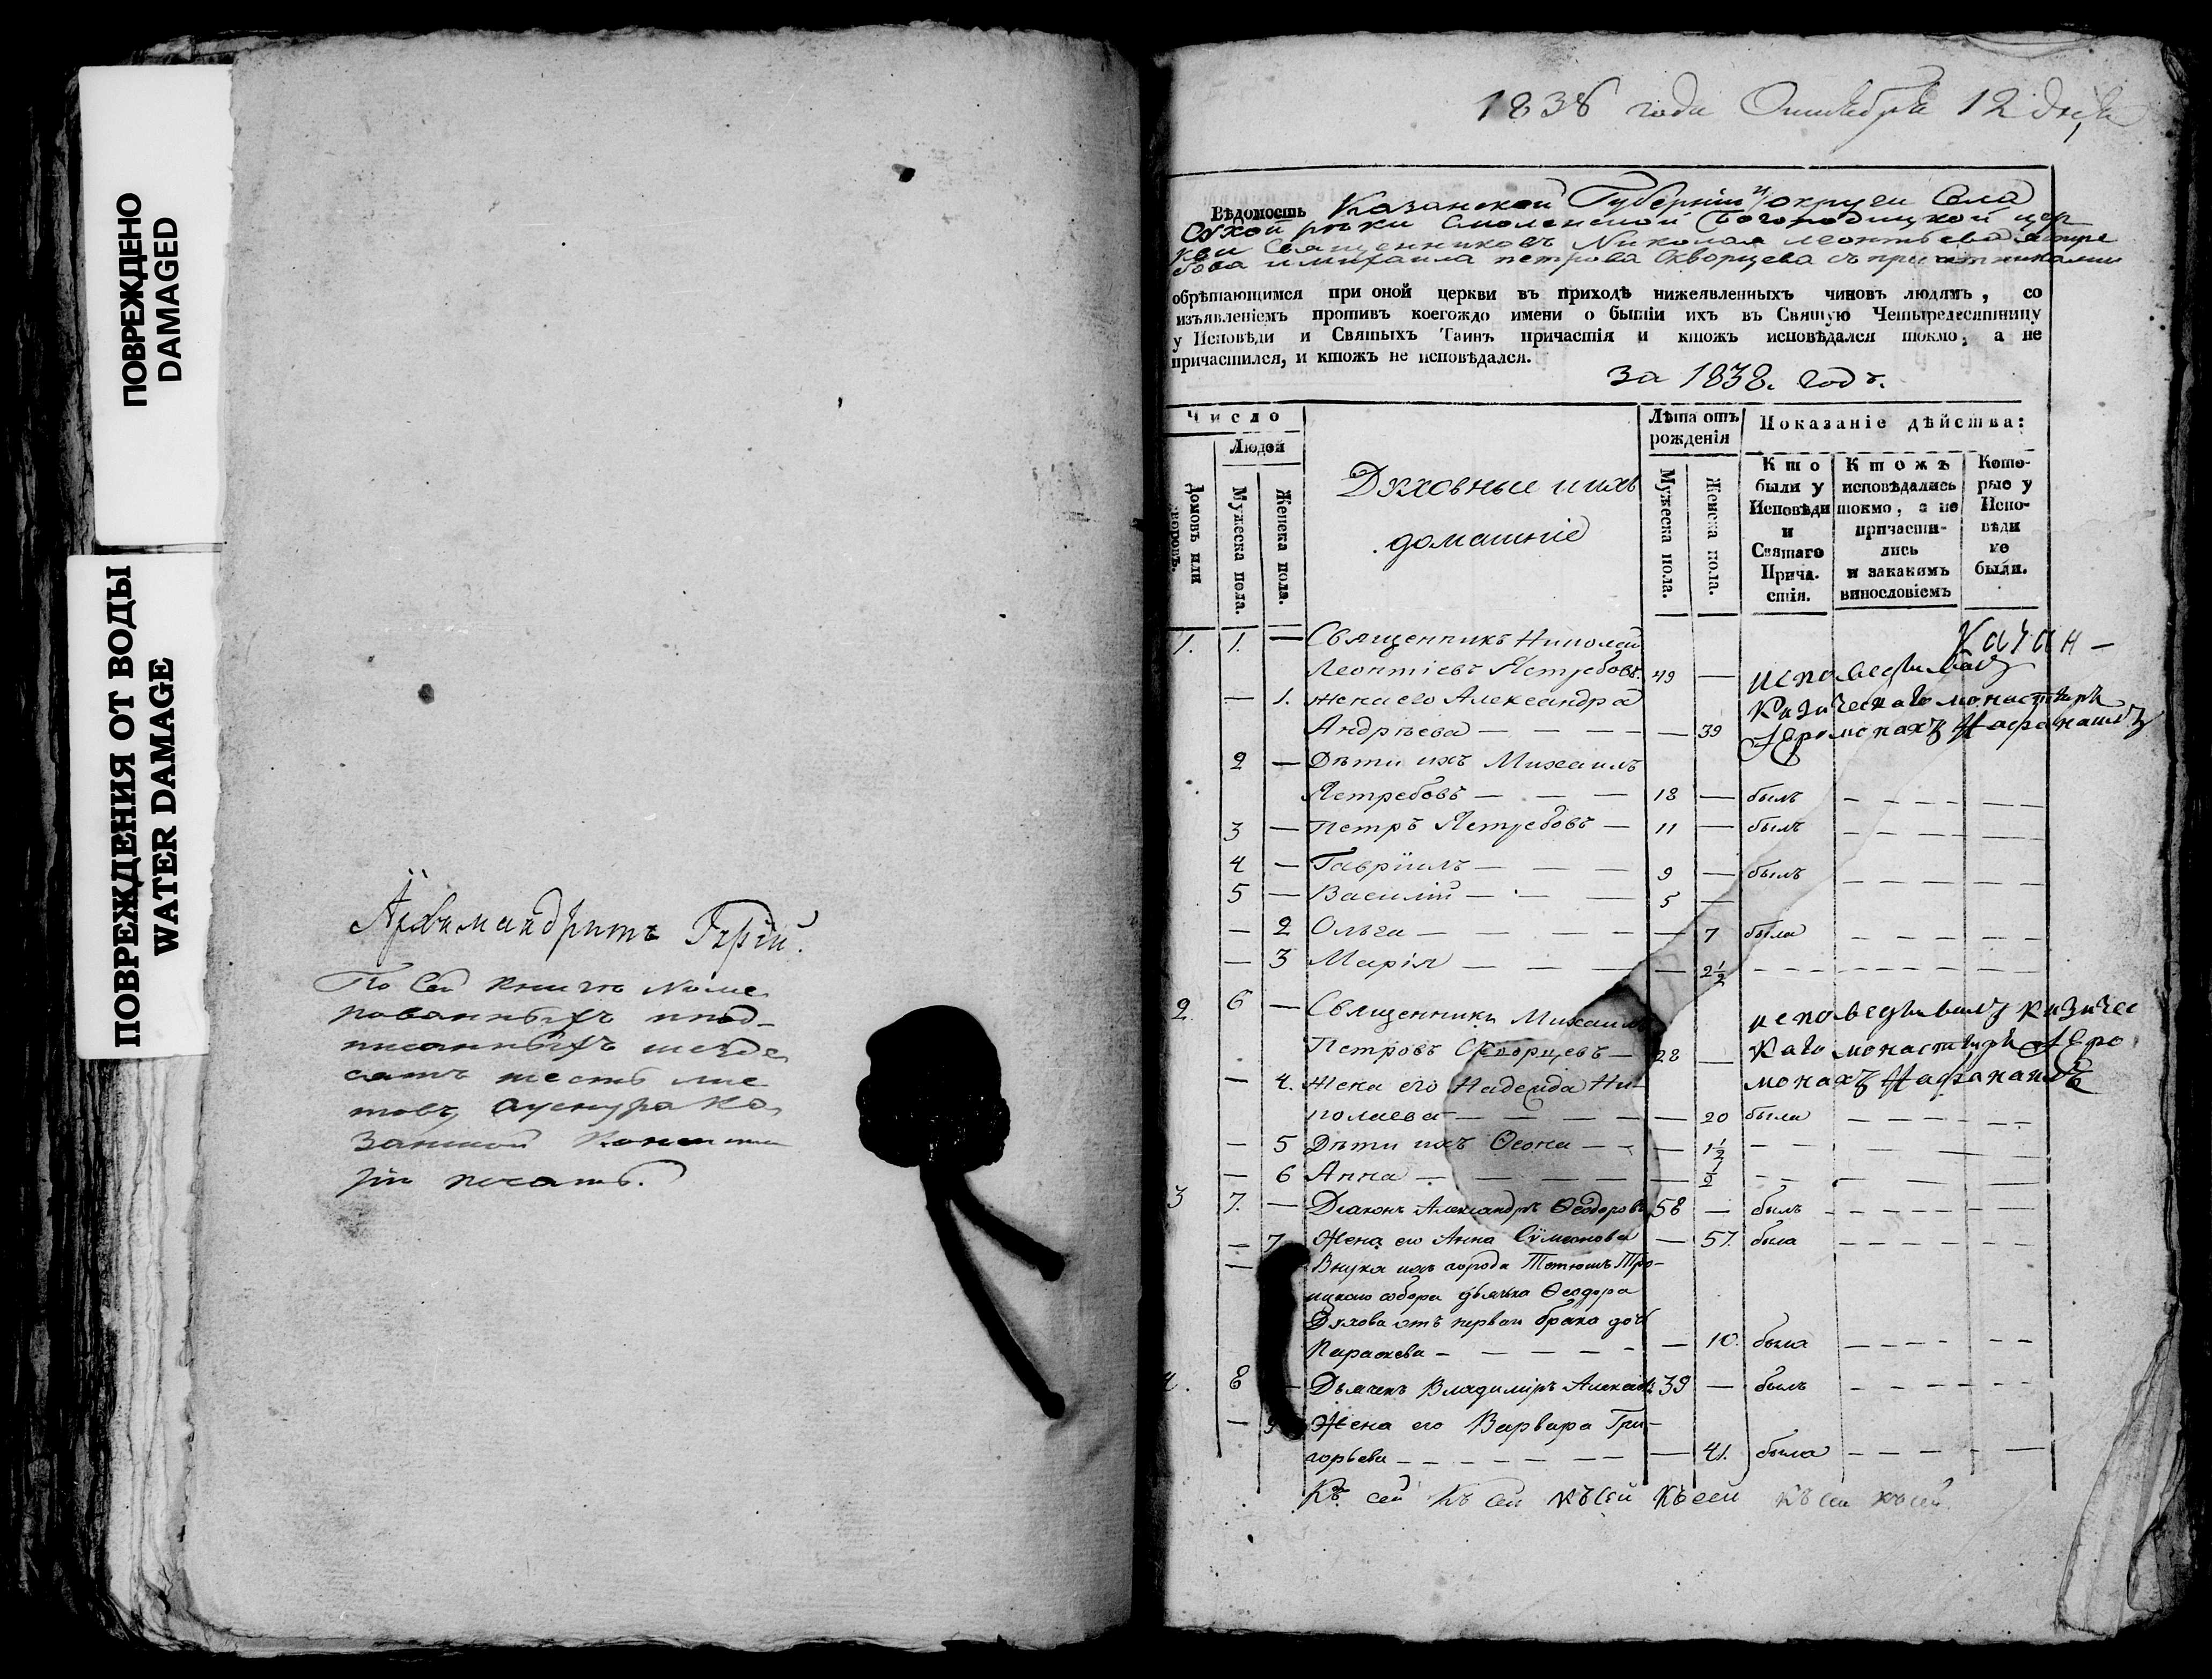 ПОВРЕЖДЕНО
DAMAGED
ПОВРЕЖДЕНИЯ ОТ ВОДЫ
WATER DAMAGE
Архимандритъ Гурій.
По сей книгѣ номе
рованныхъ и под
писанныхъ шездe
сятъ шесть лис
товъ
печать.
1838 года Октября 12 дня
Вѣдомость Казанской Губерніи и округи Села
Сухой рѣки Смоленской Богородицкой цер
кви Священниковъ Николая Леонтьева Ястре
бова и Михаила Петрова Скворцева съ причетниками
обрѣтающимся при оной церкви въ приходѣ нижеявленныхъ чиновъ людямъ, со
изъявленіемъ противъ коегождо имени о бытіи ихъ въ Святую Четыредесятницу
у Исповѣди и Святыхъ Таинъ причастія и ктожъ исповѣдался токмо, а не
причастился, и ктожъ не исповѣдался.
за 1838. годъ.
Число
Людей
Домовъ или дворовъ.
Мужеска пола.
Женска пола.
Духовные и ихъ
домашніе
Лѣта отъ
рожденія
Мужеска пола.
Женска пола.
Показаніе дѣйства:
Кто
были у
Исповѣди
и
Святаго
Прича-
стія.
Ктожъ
исповѣдались
токмо, а не
причасти-
лись
и закакимъ
винословіемъ
Кото-
рые у
Испо-
вѣди
не
были.
1. 1. — Священникъ Николай
Леонтіевъ Ястребовъ. 49 — исповедывалъ
— 1. жена его Александра Казическаго монастыря
Андрѣева — — — — — 39 Іеромонахъ Нафанаилъ
2 — Дѣти ихъ Михаилъ
Ястребовъ — — — 18 — былъ — — — — — —
3 — Петръ Ястребовъ — 11 — былъ — — — — —
4 — Гавріилъ — — — — 9 — былъ — — — — — —
5 — Василій — — — 5 —
— 2 Ольга — — — — — — 7 была — — — — — —
— 3 Марія — — — — — 2½ — — — — — — — — —
2. 6 — Священникъ Михаилъ исповедывалъ Казичес
Петровъ Скворцевъ — 28 — каго монастыря Іеро
— 4. Жена его Надежда Ни- монахъ Нафанаилъ
колаева — — — — — 20 была — — — — — —
— 5 Дѣти ихъ Ѳеона — — — 1½ — — — — — —
— 6 Анна — — — — — — ½ — — — — — —
3 7. — Діаконъ Александръ Ѳеодоровъ 58 — былъ — — — — — —
— 7 Жена его Анна Сѵмеонова — 57. была — — — — — —
— Внука ихъ города Тетюшъ Тро-
ицкаго собора дьячка Ѳеодора
Духова отъ перваго брака дочь
Параскева — — — — — — — 10. была — — — — — —
4. 8 — Дьячекъ Владиміръ Алексан. 39 — былъ — — — — — —
— 9 Жена его Варвара Гри-
горьева — — — — — — — — — 41. была — — — — —
Къ сей къ сей къ сей къ сей къ сей къ сей